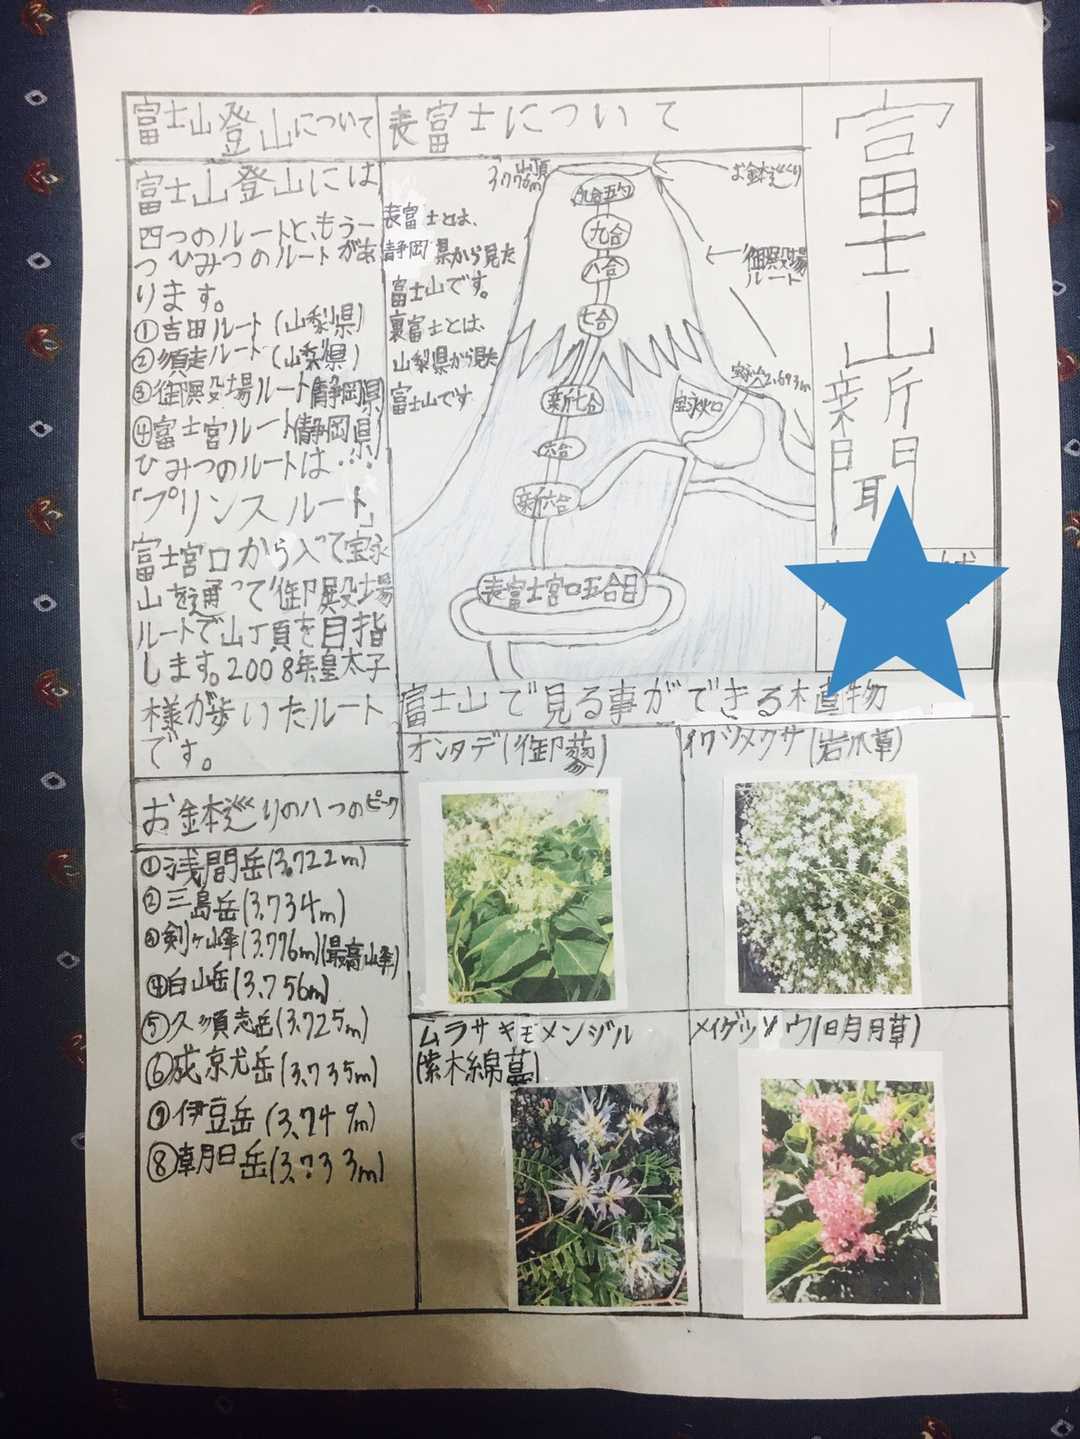 富士山新聞
富士山登山について
富士山登山には
四つのルートと、もう一
つひみつのルートがあ
ります。
①吉田ルート(山梨県)
②須走ルート(山梨県)
③御殿場ルート(静岡県)
④富士宮ルート(静岡県)
ひみつのルートは…
「プリンスルート」
富士宮口から入って宝永
山を通って御殿場
ルートで山頂を目指
します。2008年皇太子
様が歩いたルート
です。
表富士について
表富士とは、
静岡県から見た
富士山です。
裏富士とは、
山梨県から見た
富士山です
山頂
3,776m
お鉢巡り
九合五勺
九合
八合
七合
新七合
六合
新六合
表富士宮口五合目
御殿場
ルート
宝永山2,693m
宝永火口
お鉢巡りの八つのピーク
①浅間岳(3,722m)
②三島岳(3,734m)
③剣ヶ峰(3,776m)(最高峰)
④白山岳(3,756m)
⑤久須志岳(3,725m)
⑥成京尤岳(3,735m)
⑦伊豆岳(3,749m)
⑧朝日岳(3,733m)
富士山で見る事ができる植物
オンタデ(御蓼)
イワツメクサ(岩爪草)
ムラサキモメンジル
(紫木綿蔓)
メイゲツソウ(明月草)